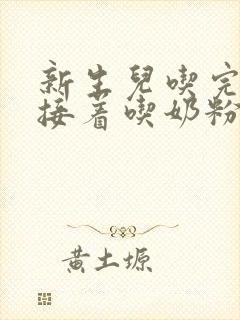 新生兒喫完
接着喫奶粉
黄土塬